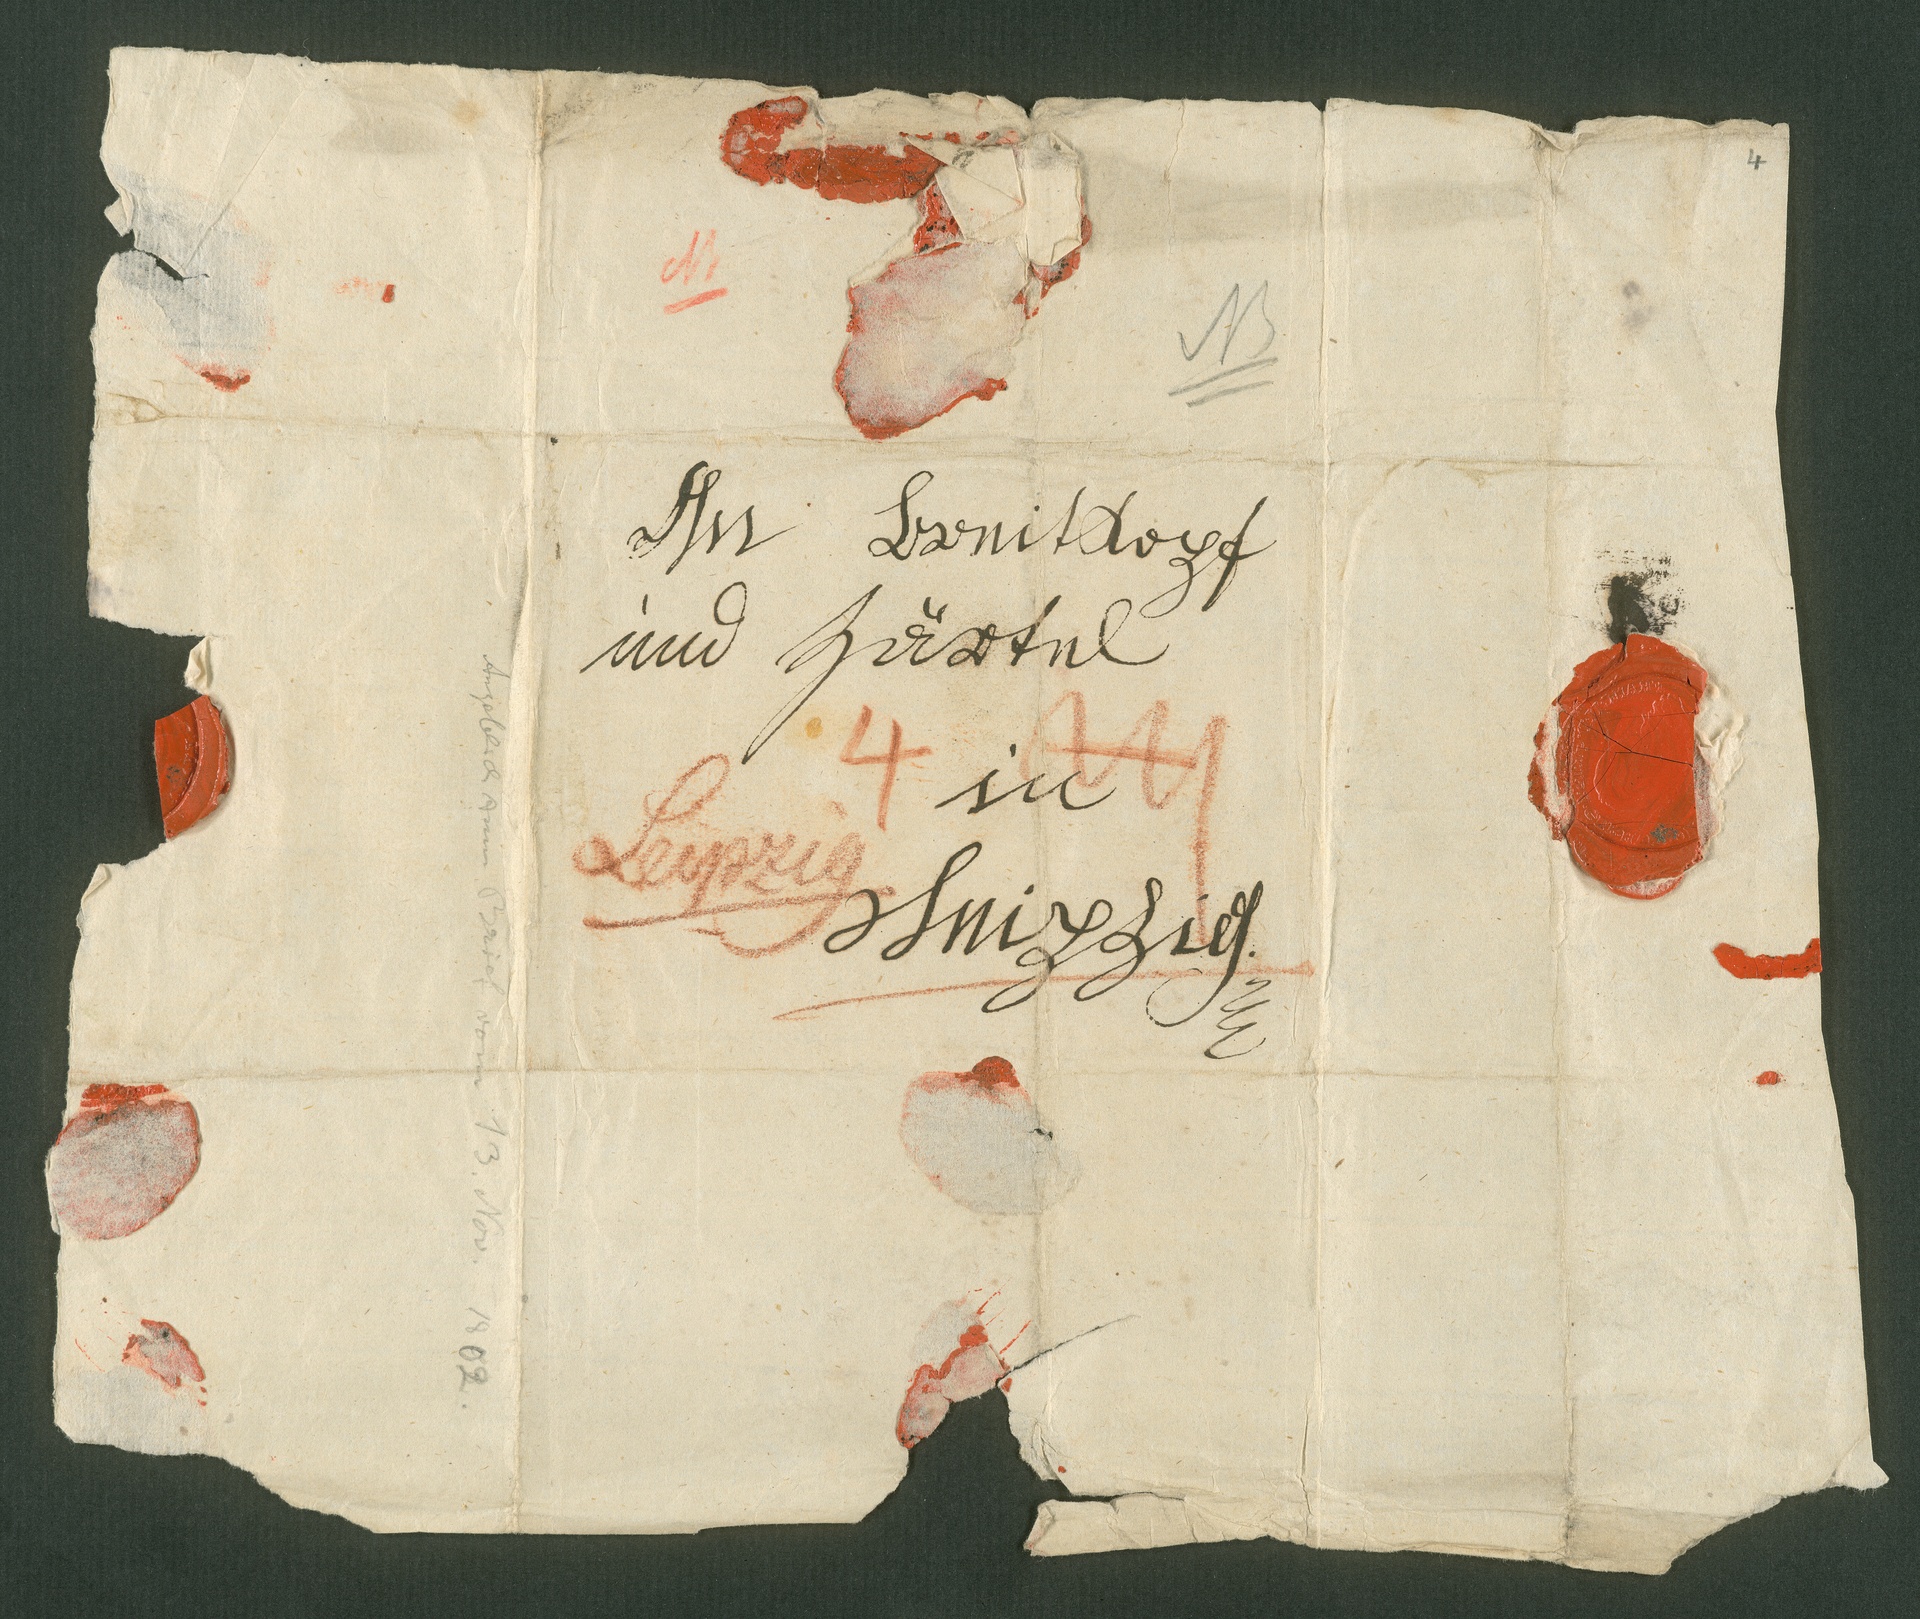 4
NB
NB
An Breitkopf
und Härtel
4
in
Leipzig
Leipzig.
Angeblich A Brief vom 13. Nov. 1802.